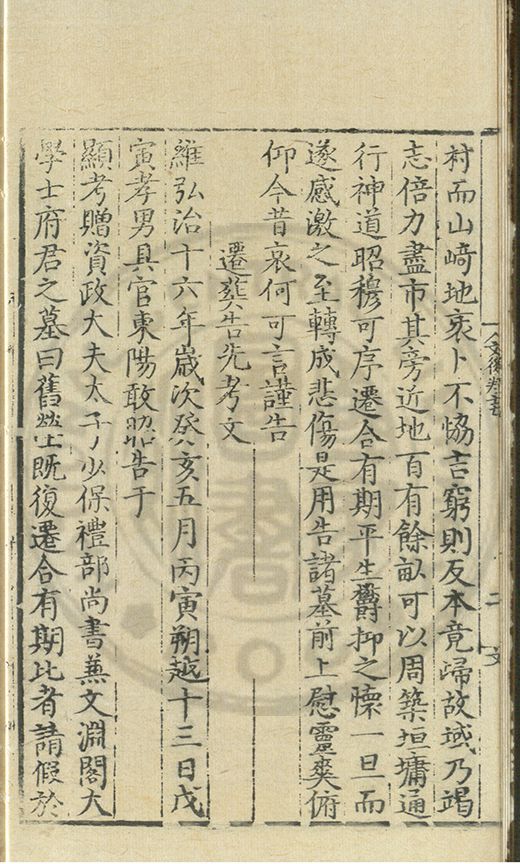 村而山﨑地衺卜不恊吉窮則反本竟歸故域乃竭
志倍力盡市其旁近地百有餘畝可以周築垣墉通
行神道昭穆可序遷合有期平生欝抑之懷一旦而
遂感激之至轉成悲傷是用告諸墓前上慰靈爽俯
仰今昔哀何可言謹告
遷葬告先考文
維弘治十六年歲次癸亥五月丙寅朔越十三日戊
寅孝男具官東陽敢昭告于
顯考贈資政大夫太子少保禮部尚書蒹文淵閣大
學士府君之墓曰舊塋既復遷合有期比者請假於
二
文